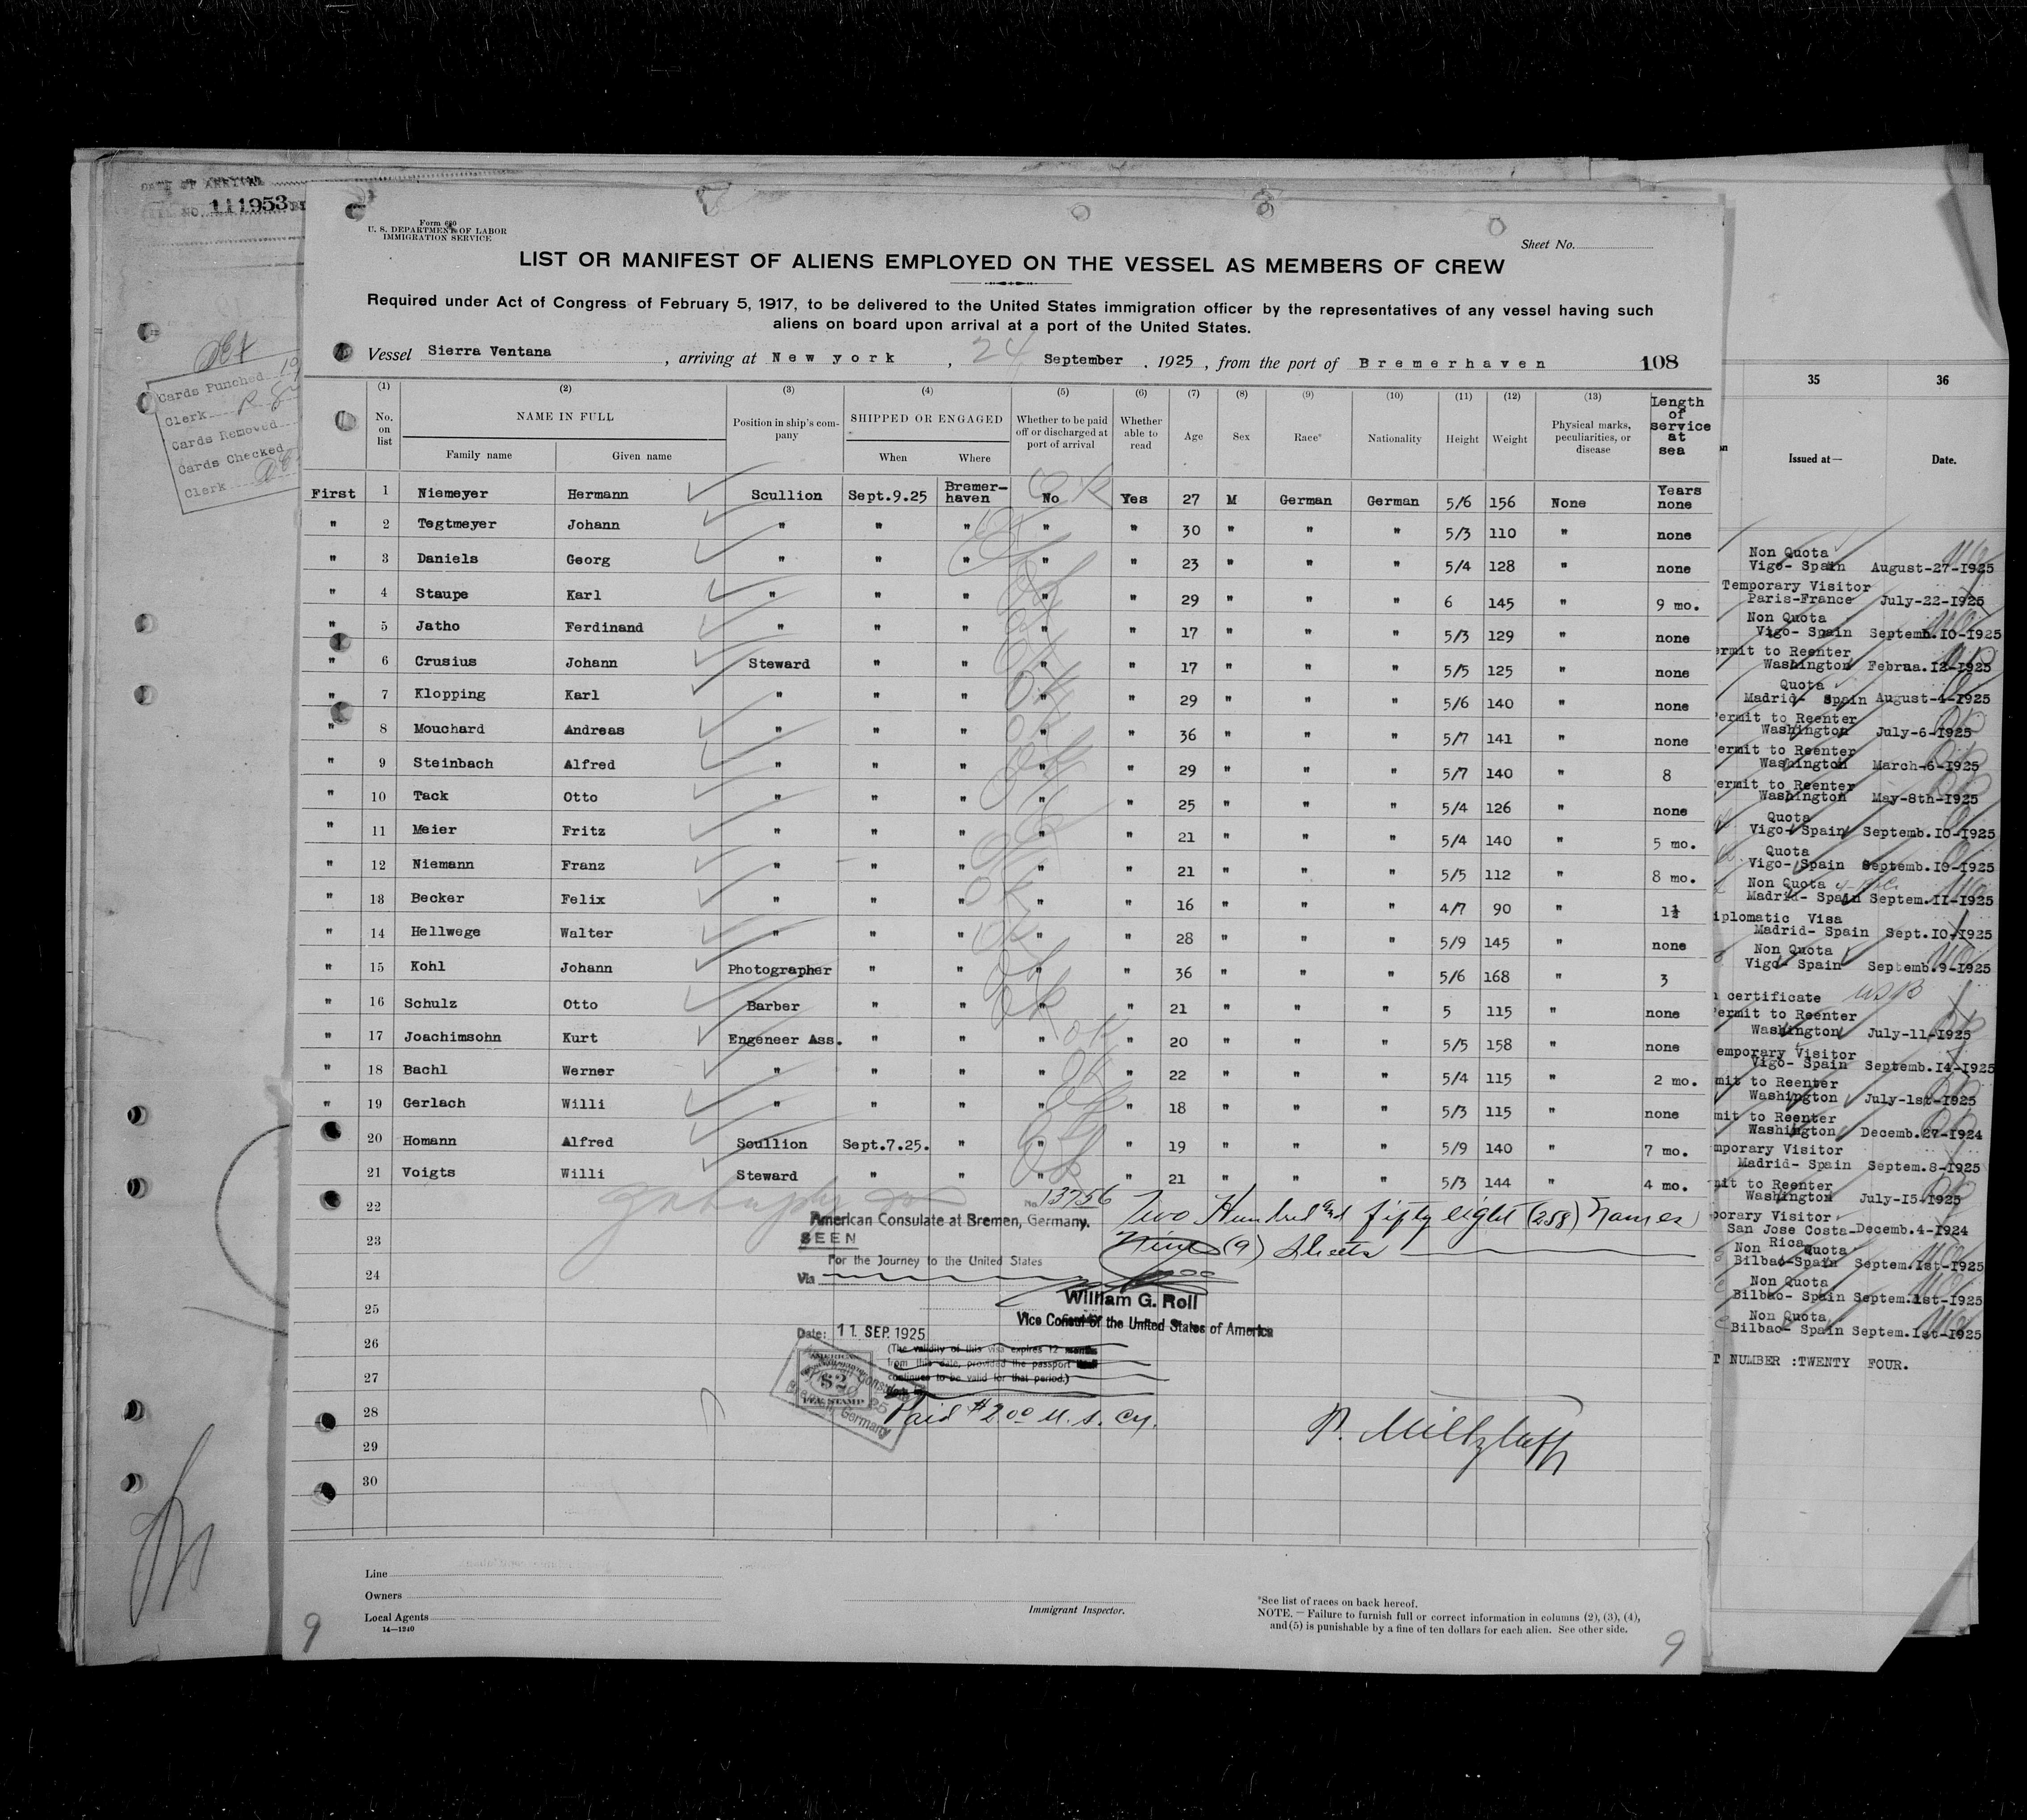 DATE OF ARRIVAL
NO. 111953
Cards Punched
Clerk
Cards Removed
Cards Checked
Clerk
Form 680
U. S. DEPARTMENT OF LABOR
IMMIGRATION SERVICE
Sheet No.
LIST OR MANIFEST OF ALIENS EMPLOYED ON THE VESSEL AS MEMBERS OF CREW
Required under Act of Congress of February 5, 1917, to be delivered to the United States immigration officer by the representatives of any vessel having such
aliens on board upon arrival at a port of the United States.
Vessel Sierra Ventana , arriving at New york , 24 September , 1925 , from the port of Bremerhaven 108
(1) (2) (3) (4) (5) (6) (7) (8) (9) (10) (11) (12) (13)
No. on list NAME IN FULL Family name Given name Position in ship's company SHIPPED OR ENGAGED When Where Whether to be paid off or discharged at port of arrival Whether able to read Age Sex Race* Nationality Height Weight Physical marks, peculiarities, or disease Length of service at sea
First 1 Niemeyer Hermann Scullion Sept.9.25 Bremer-haven No Yes 27 M German German 5/6 156 None Years none
" 2 Tegtmeyer Johann " " " " " 30 " " " 5/3 110 " none
" 3 Daniels Georg " " " " " 23 " " " 5/4 128 " none
" 4 Staupe Karl " " " " " 29 " " " 6 145 " 9 mo.
" 5 Jatho Ferdinand " " " " " 17 " " " 5/3 129 " none
" 6 Crusius Johann Steward " " " " 17 " " " 5/5 125 " none
" 7 Klopping Karl " " " " " 29 " " " 5/6 140 " none
" 8 Mouchard Andreas " " " " " 36 " " " 5/7 141 " none
" 9 Steinbach Alfred " " " " " 29 " " " 5/7 140 " 8
" 10 Tack Otto " " " " " 25 " " " 5/4 126 " none
" 11 Meier Fritz " " " " " 21 " " " 5/4 140 " 5 mo.
" 12 Niemann Franz " " " " " 21 " " " 5/5 112 " 8 mo.
" 13 Becker Felix " " " " " 16 " " " 4/7 90 "
" 14 Hellwege Walter " " " " " 28 " " " 5/9 145 " none
" 15 Kohl Johann Photographer " " " " 36 " " " 5/6 168 " 3
" 16 Schulz Otto Barber " " " " 21 " " " 5 115 " none
" 17 Joachimsohn Kurt Engeneer Ass. " " " " 20 " " " 5/5 158 " none
" 18 Bachl Werner " " " " " 22 " " " 5/4 115 " 2 mo.
" 19 Gerlach Willi " " " " " 18 " " " 5/3 115 " none
20 Homann Alfred Scullion Sept.7.25. " " " 19 " " " 5/9 140 " 7 mo.
21 Voigts Willi Steward " " " " 21 " " " 5/3 144 " 4 mo.
22
23
24
25
26
27
28
29
30
No 13756
American Consulate at Bremen, Germany.
SEEN
For the Journey to the United States
Via
Two Hundred and fifty eight (258) Names
Nine (9) Sheets
William G. Roll
Vice Consul of the United States of America
Date: 11 SEP. 1925
(The validity of this visa expires 12 months
from this date, provided the passport
continues to be valid for that period.)
$2
FEE STAMP
Bremen, Germany
Paid $2.00 U. S. Cy.
Line
Owners
Local Agents
14—1240
Immigrant Inspector.
*See list of races on back hereof.
NOTE. — Failure to furnish full or correct information in columns (2), (3), (4),
and (5) is punishable by a fine of ten dollars for each alien. See other side.
9
9
35 36
Issued at— Date.
Non Quota
Vigo- Spain August-27-1925
Temporary Visitor
Paris-France July-22-1925
Non Quota
Vigo- Spain Septemb.10-1925
ermit to Reenter
Washington Februa.12-1925
Quota
Madrid- Spain August-4-1925
ermit to Reenter
Washington July-6-1925
ermit to Reenter
Washington March-6-1925
ermit to Reenter
Washington May-8th-1925
Quota
Vigo- Spain Septemb.10-1925
Quota
Vigo- Spain Septemb.10-1925
Non Quota
Madrid- Spain Septem.11-1925
iplomatic Visa
Madrid- Spain Sept.10-1925
Non Quota
Vigo- Spain Septemb.9-1925
certificate
ermit to Reenter
Washington July-11-1925
emporary Visitor
Vigo- Spain Septemb.14-1925
mit to Reenter
Washington July-1st-1925
mit to Reenter
Washington Decemb.27-1924
mporary Visitor
Madrid- Spain Septem.8-1925
mit to Reenter
Washington July-15-1925
porary Visitor
San Jose Costa- Decemb.4-1924
Rica
Non Quota
Bilbao-Spain Septem.1st-1925
Non Quota
Bilbao- Spain Septem.1st-1925
Non Quota
Bilbao- Spain Septem.1st-1925
T NUMBER :TWENTY FOUR.